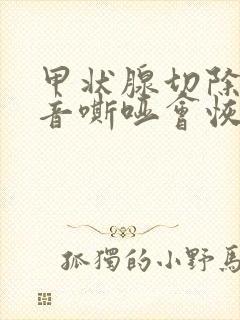 甲状腺切除
音嘶哑會恢
孤獨的小野馬